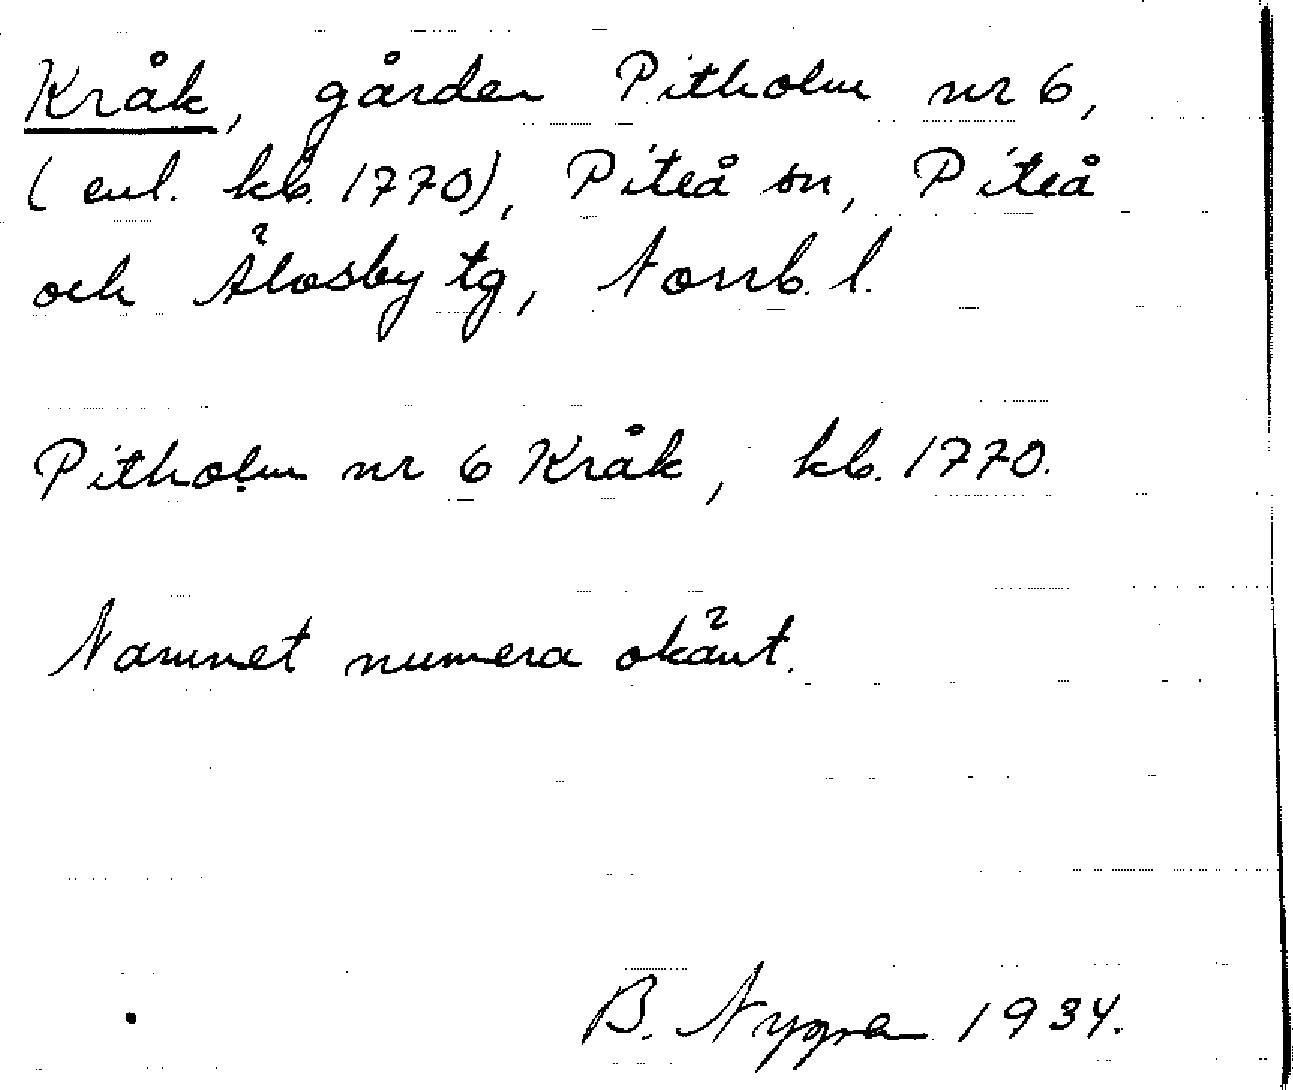 Kråk, gården Pitholm nr 6,
(enl. kb. 1770), Piteå sn, Piteå
och Älvsby tg, Norrb. l.
Pitholm nr 6 Kråk, kb. 1770.
Namnet numera okänt.
B. Nygren 1934.